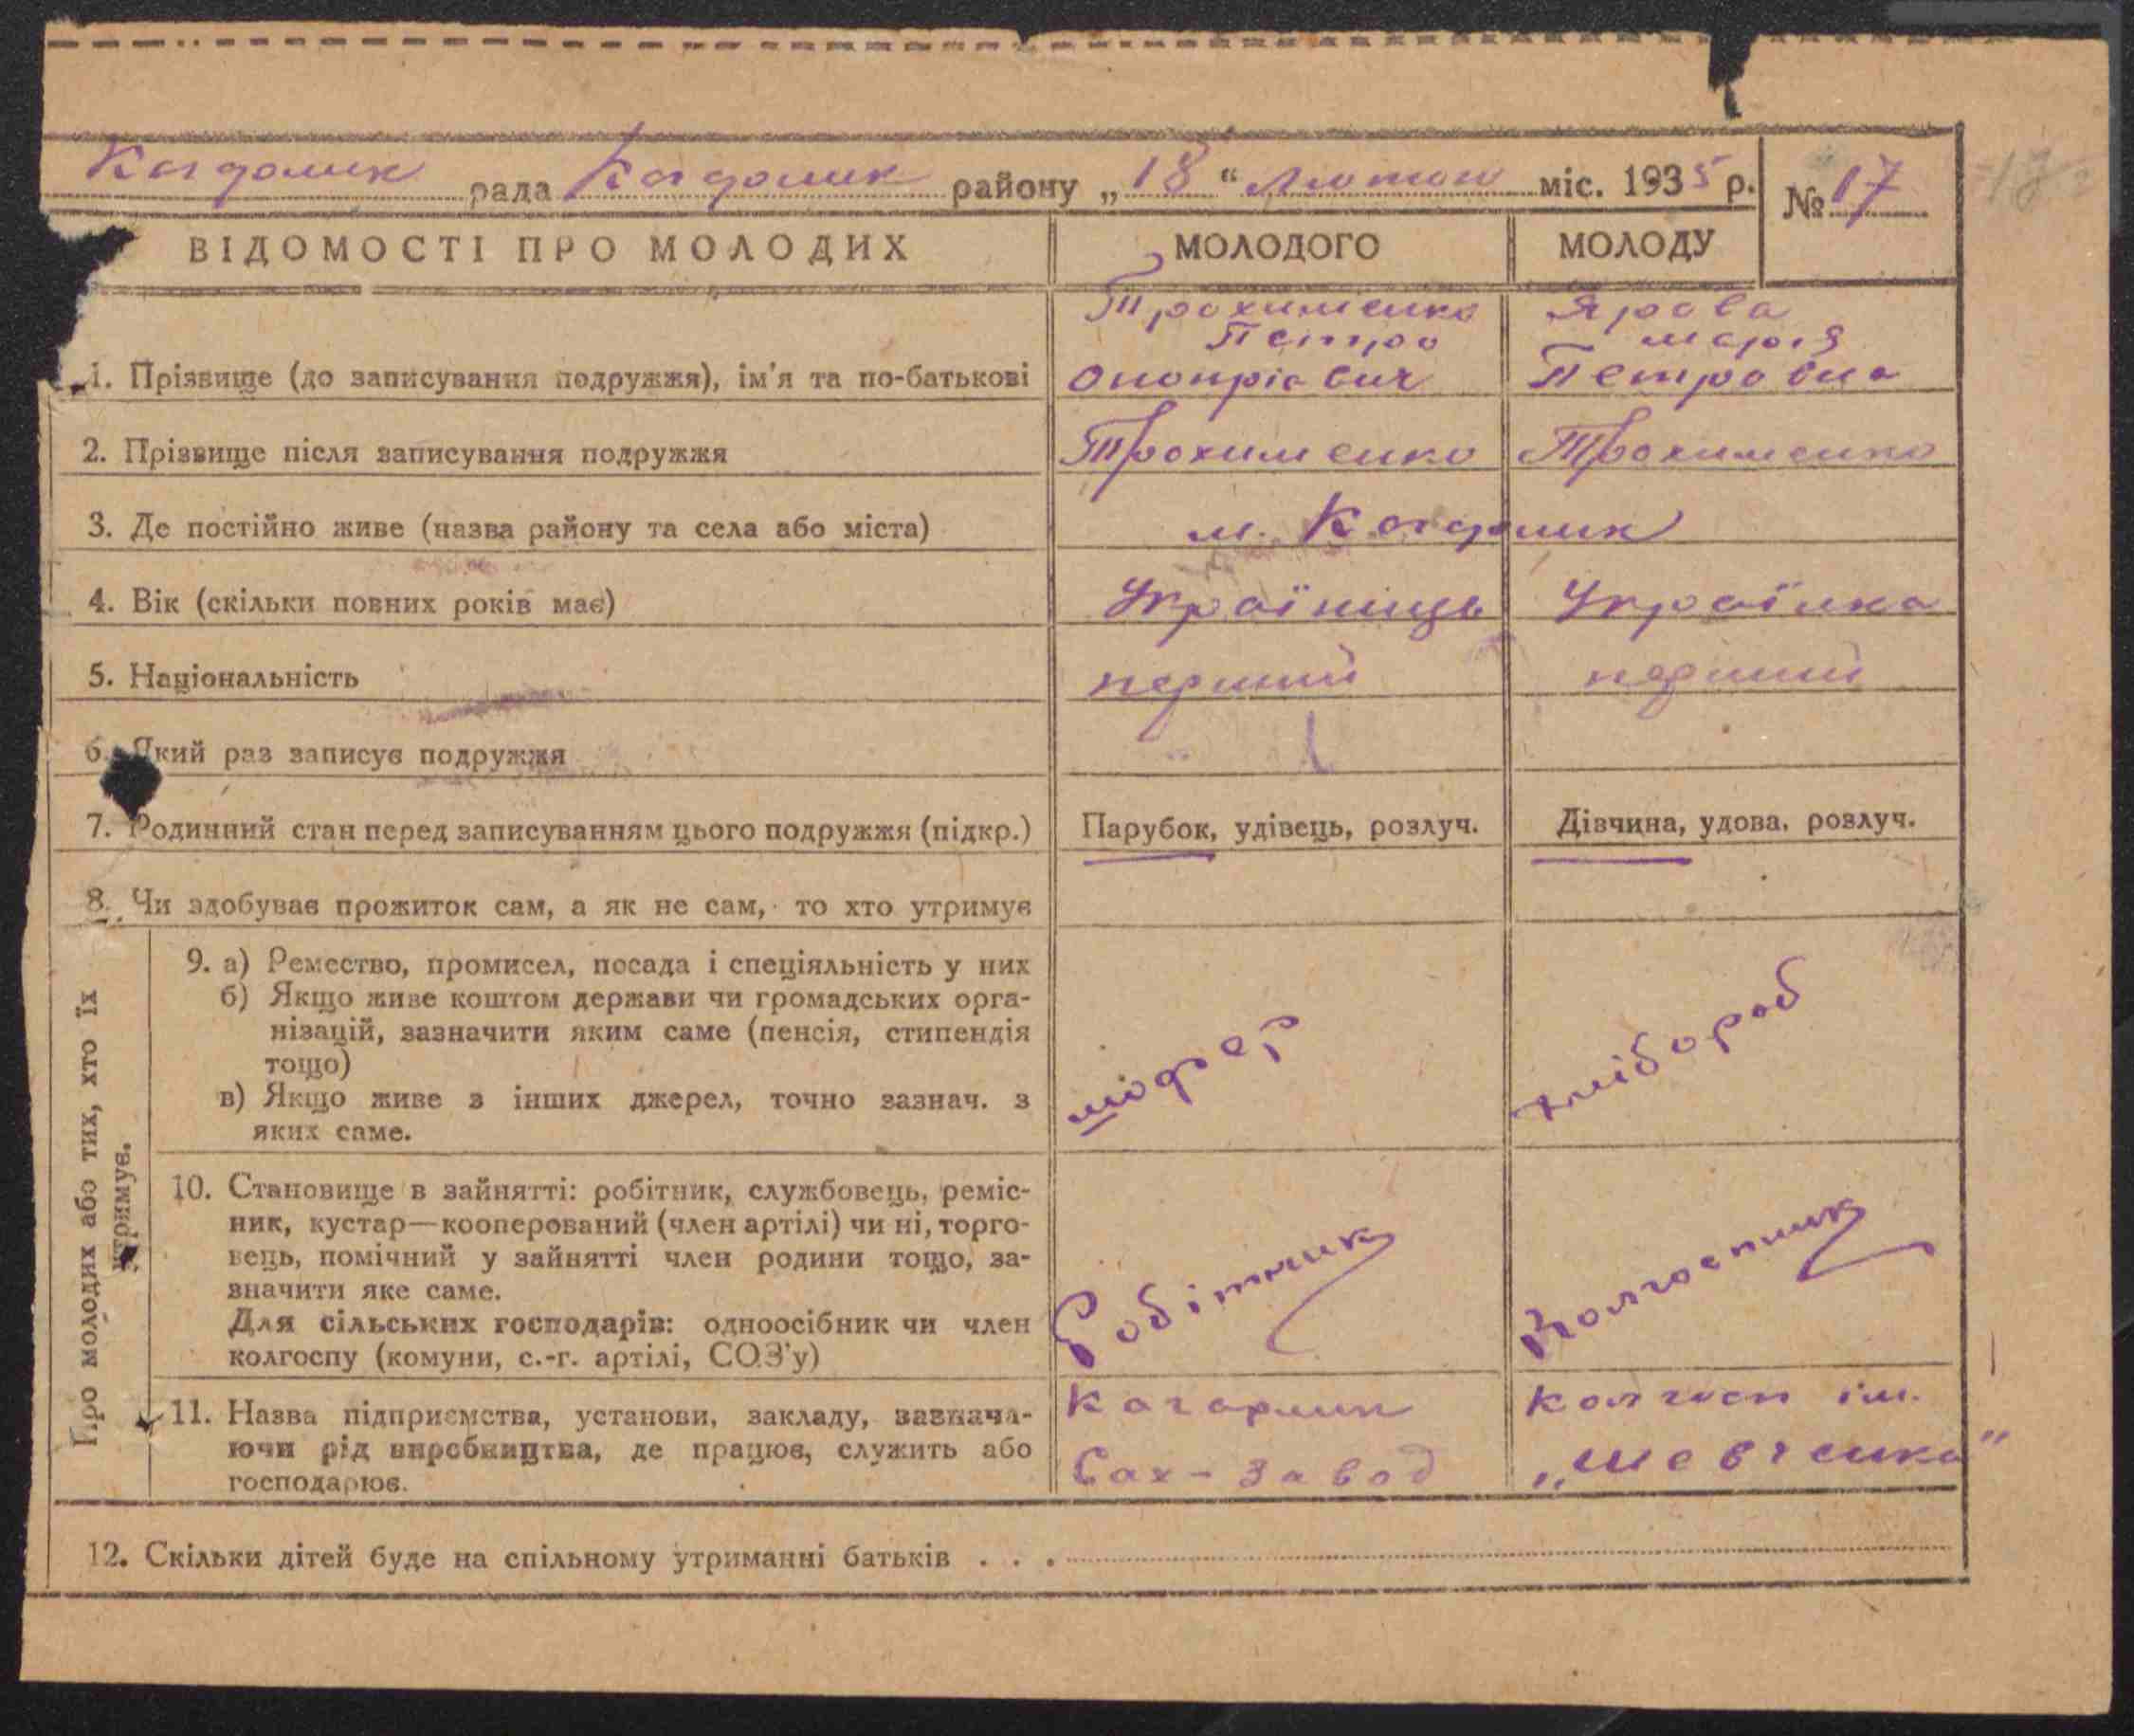 Кагарлик рада Кагарлик району „18“ Лютого міс. 1935 р. № 17
ВІДОМОСТІ ПРО МОЛОДИХ МОЛОДОГО МОЛОДУ
Трохименко Ярова
Петро Марія
1. Прізвище (до записування подружжя), ім'я та по-батькові Оноприєвич Петровна
2. Прізвище після записування подружжя Трохименко Трохименко
3. Де постійно живе (назва району та села або міста) м. Кагарлик
4. Вік (скільки повних років має) Українець Українка
5. Національність перший перший
6. Який раз записує подружжя
7. Родинний стан перед записуванням цього подружжя (підкр.) Парубок, удівець, розлуч. Дівчина, удова, розлуч.
8. Чи здобуває прожиток сам, а як не сам, то хто утримує
Про молодих або тих, хто їх
утримує.
9. а) Ремество, промисел, посада і спеціяльність у них
б) Якщо живе коштом держави чи громадських орга-
нізацій, зазначити яким саме (пенсія, стипендія
тощо)
в) Якщо живе з інших джерел, точно зазнач. з
яких саме.
шофер хлібороб
10. Становище в зайнятті: робітник, службовець, реміс-
ник, кустар—кооперований (член артілі) чи ні, торго-
вець, помічний у зайнятті член родини тощо, за-
значити яке саме.
Для сільських господарів: одноосібник чи член
колгоспу (комуни, с.-г. артілі, СОЗ'у)
Робітник Колгоспник
11. Назва підприємства, установи, закладу, зазнача-
ючи рід виробництва, де працює, служить або
господарює.
Кагарлик колгосп ім.
Сах-завод „Шевченка"
12. Скільки дітей буде на спільному утриманні батьків . . .